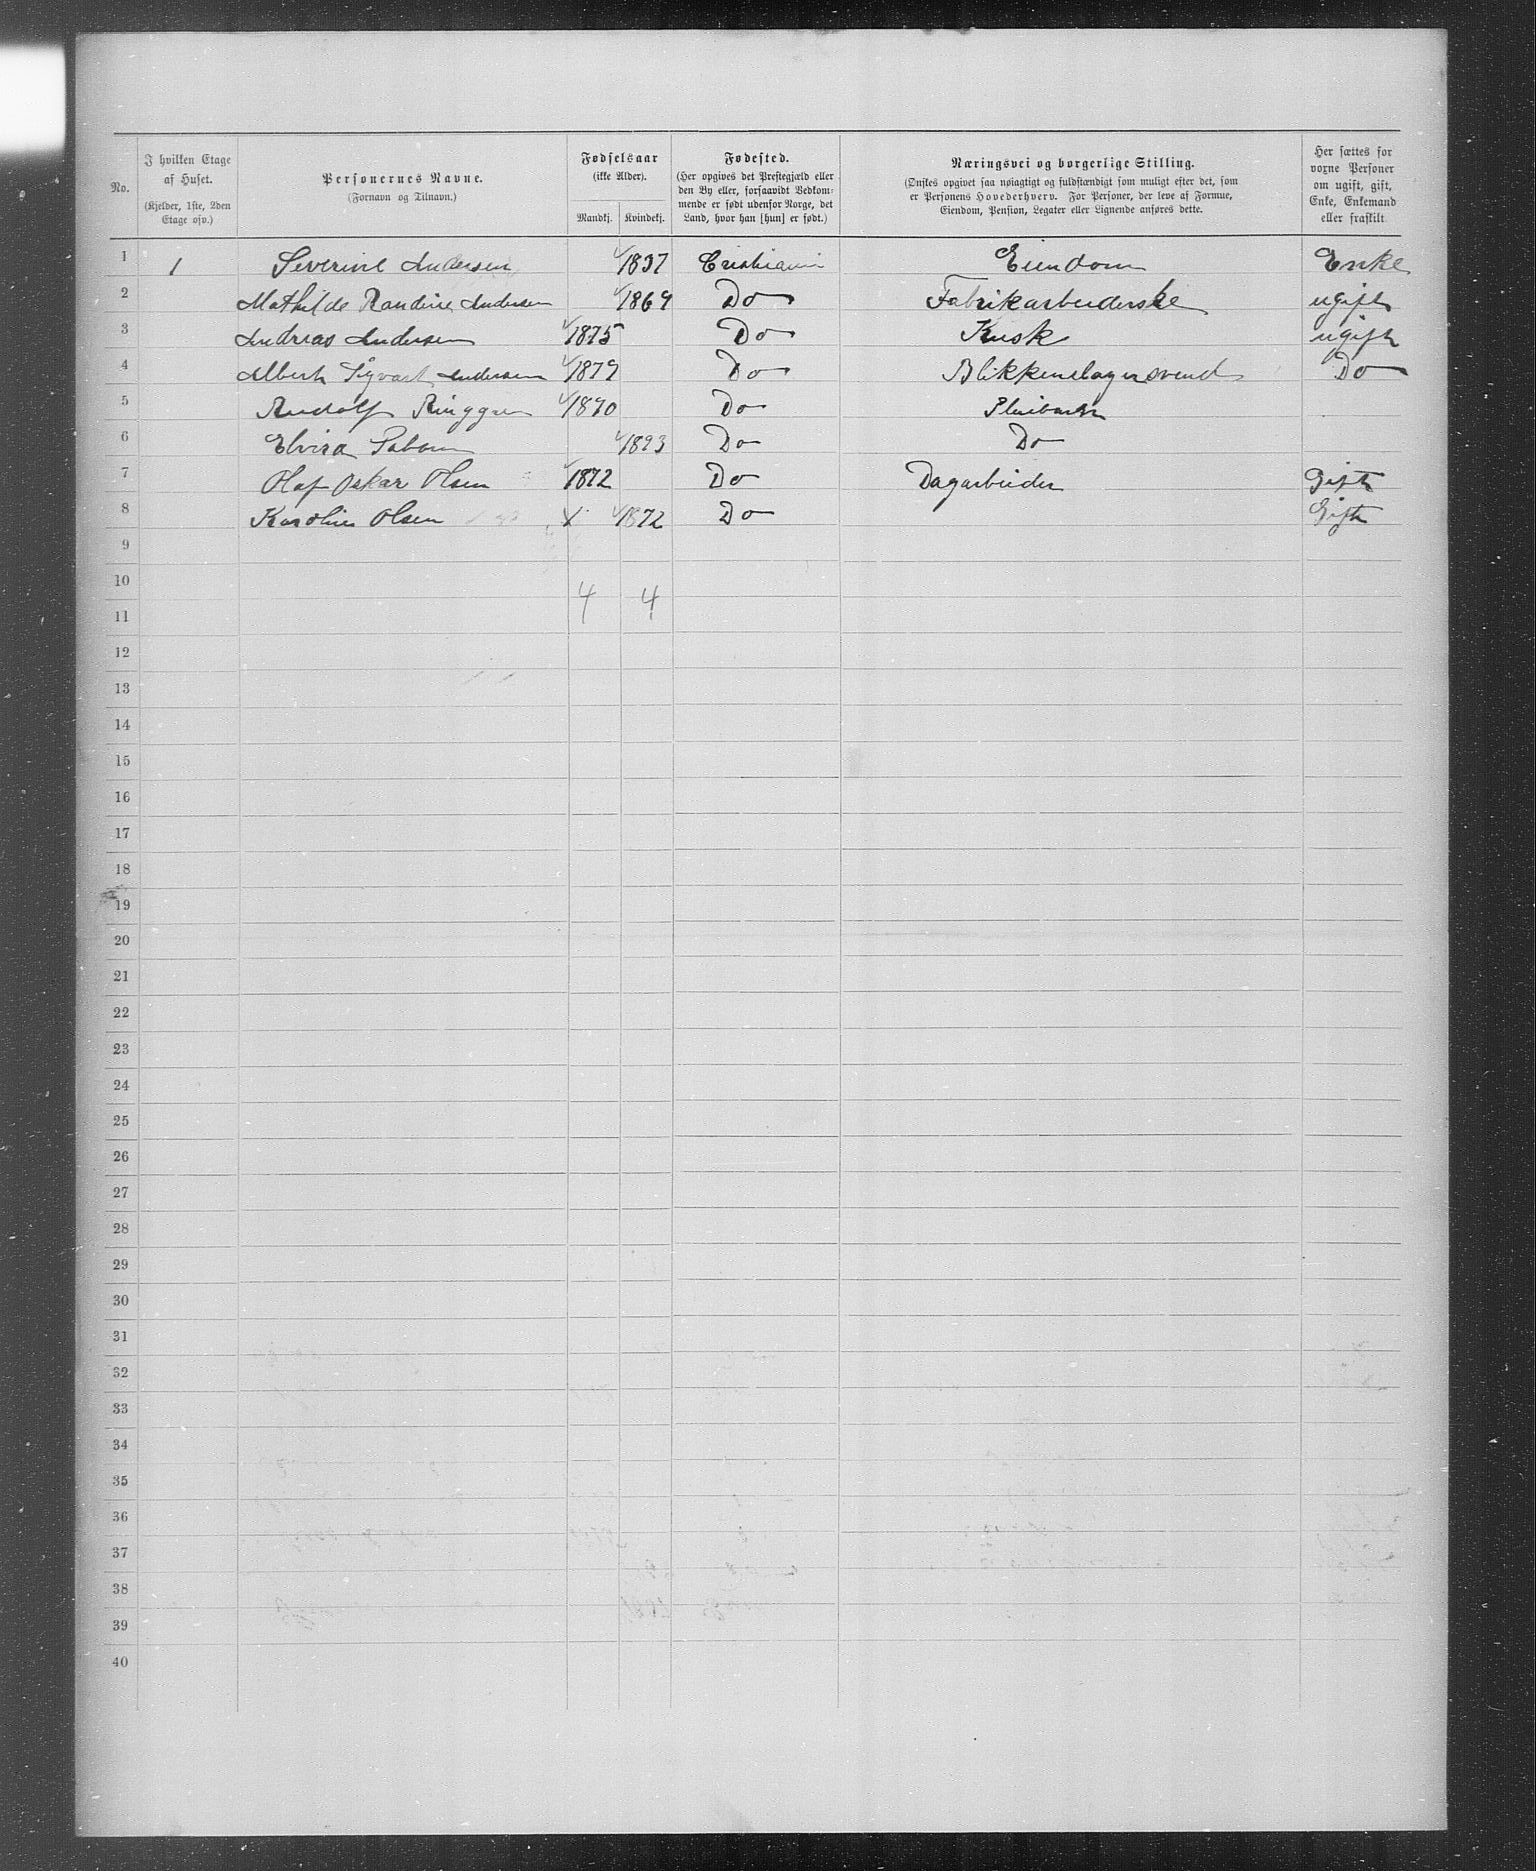 No.
I hvilken Etage af Huset.
(Kjelder, 1ste, 2den Etage osv.)
Personernes Navne.
(Fornavn og Tilnavn.)
Fødselsaar
(ikke Alder).
Mandkj. Kvindekj.
Fødested.
(Her opgives det Prestegjæld eller
den By eller, forsaavidt Vedkom-
mende er født udenfor Norge, det
Land, hvor han [hun] er født.)
Næringsvei og borgerlige Stilling.
(Ønskes opgivet saa nøiagtigt og fuldstændigt som muligt efter det, som
er Personens Hovederhverv. For Personer, der leve af Formue,
Eiendom, Pension, Legater eller Lignende anføres dette.
Her sættes for
voxne Personer
om ugift, gift,
Enke, Enkemand
eller fraskilt
1 1 Severine Andersen 1837 Eiendom Enke
2 Mathilde Randine Andersen 1869 Do Fabrikarbeiderske ugift
3 Andreas Andersen 1875 Do Kusk ugift
4 Albert Sigvart Andersen 1879 Do Blikkenslagersvend Do
5 Rudolf Do
6 Elvira 1893 Do Do
7 Olaf Oskar Olsen 1872 Do Dagarbeider Gift
8 Karoline Olsen x 1872 Do Gift
9
10
4 4
11
12
13
14
15
16
17
18
19
20
21
22
23
24
25
26
27
28
29
30
31
32
33
34
35
36
37
38
39
40